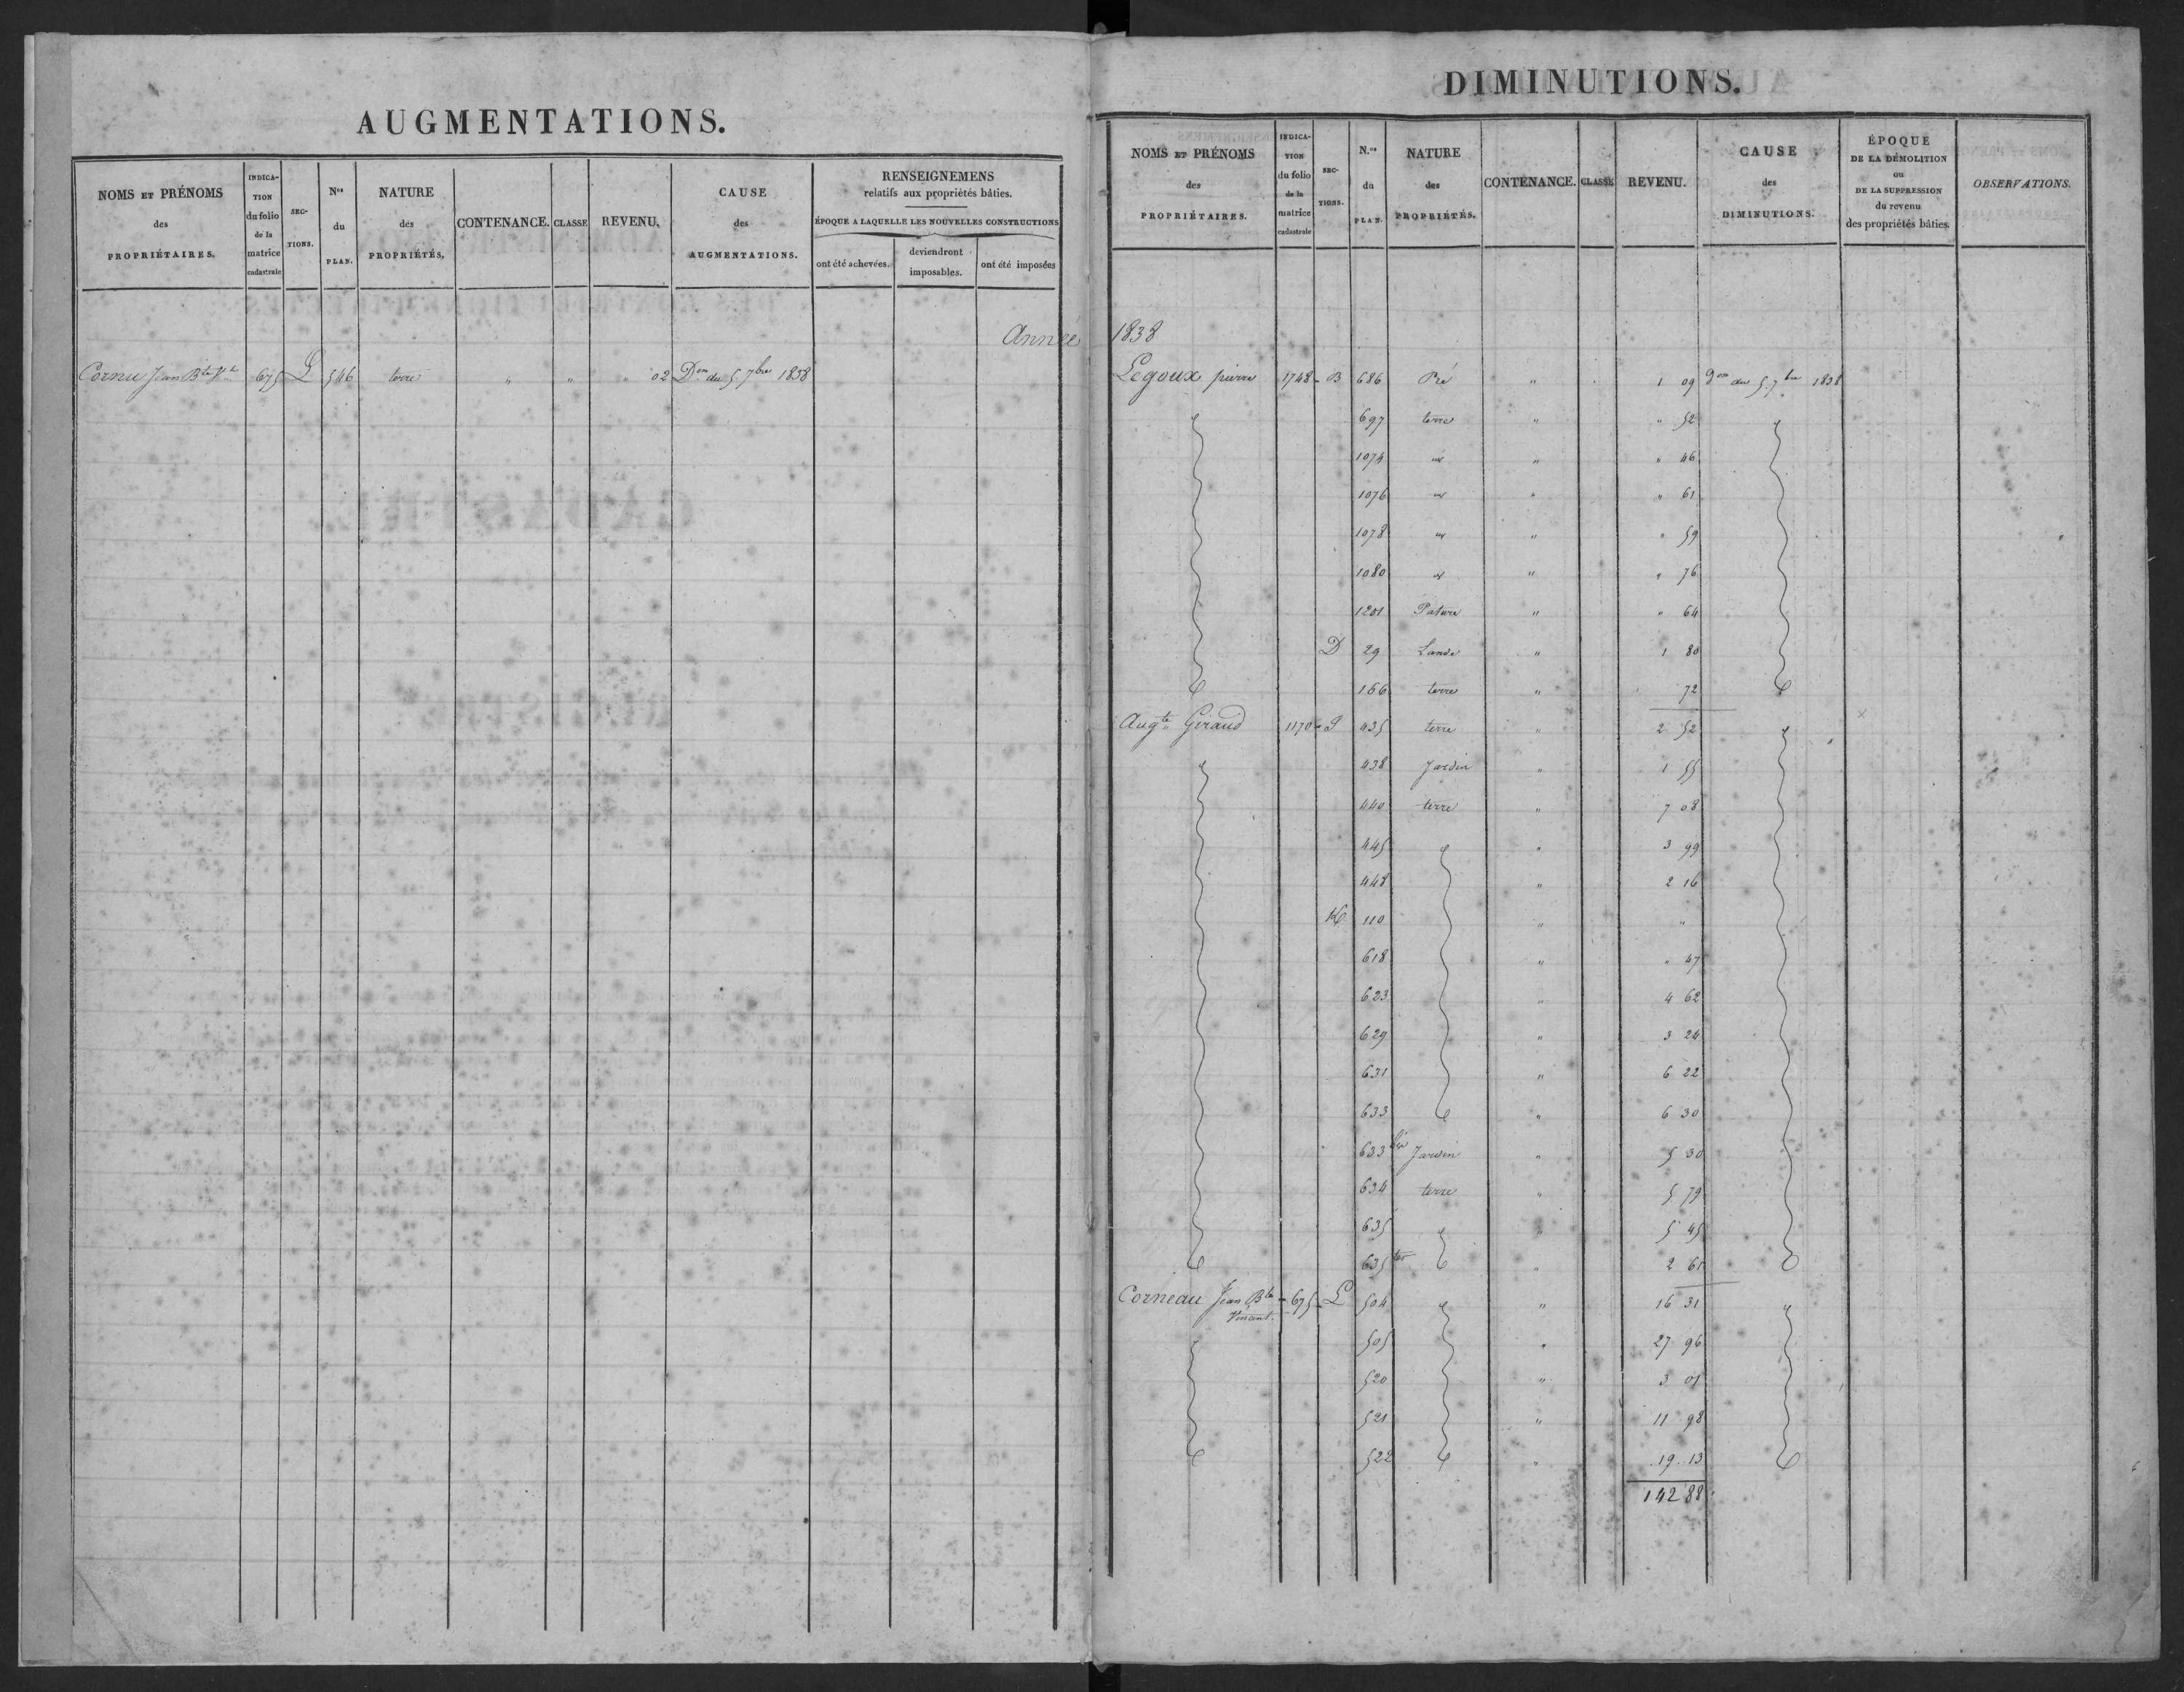 AUGMENTATIONS.
NOMS ET PRÉNOMS des PROPRIÉTAIRES.
INDICATION du folio de la matrice cadastrale
SECTIONS.
Nos du PLAN.
NATURE des PROPRIÉTÉS.
CONTENANCE.
CLASSE
REVENU.
CAUSE des AUGMENTATIONS.
RENSEIGNEMENS relatifs aux propriétés bâties.
ÉPOQUE A LAQUELLE LES NOUVELLES CONSTRUCTIONS
ont été achevées.
deviendront imposables.
ont été imposées
Année 1838
Cornu Jean Bte Vt 675 L 546 terre " " " 02 Don du 5 7bre 1838
DIMINUTIONS.
NOMS ET PRÉNOMS des PROPRIÉTAIRES.
INDICATION du folio de la matrice cadastrale
SECTIONS.
N.os du PLAN.
NATURE des PROPRIÉTÉS.
CONTENANCE.
CLASSE
REVENU.
CAUSE des DIMINUTIONS.
ÉPOQUE DE LA DÉMOLITION ou DE LA SUPPRESSION du revenu des propriétés bâties.
OBSERVATIONS.
Legoux pierre 1748 B 686 Pré " 1 09 Don du 5 7bre 1838
697 terre " " 52
1074 id " " 46
1076 id " " 61
1078 id " " 59
1080 id " " 76
1201 Pature " " 64
D 29 Lande " 1 80
166 terre " 72
Augte Giraud 1170 I 435 terre " 2 52
438 Jardin " 1 55
440 terre " 7 08
445 " 3 99
448 " 2 16
K 110 " "
618 " " 47
623 " 4 62
629 " 3 24
631 " 6 22
633 " 6 30
633 bis Jardin " 5 30
634 terre " 5 79
635 " 5 45
635 ter " 2 61
Corneau Jean Bte Vincent. 675 L 504 " 16 31
505 " 27 96
520 " 3 01
521 " 11 98
522 " 19 13
142 88